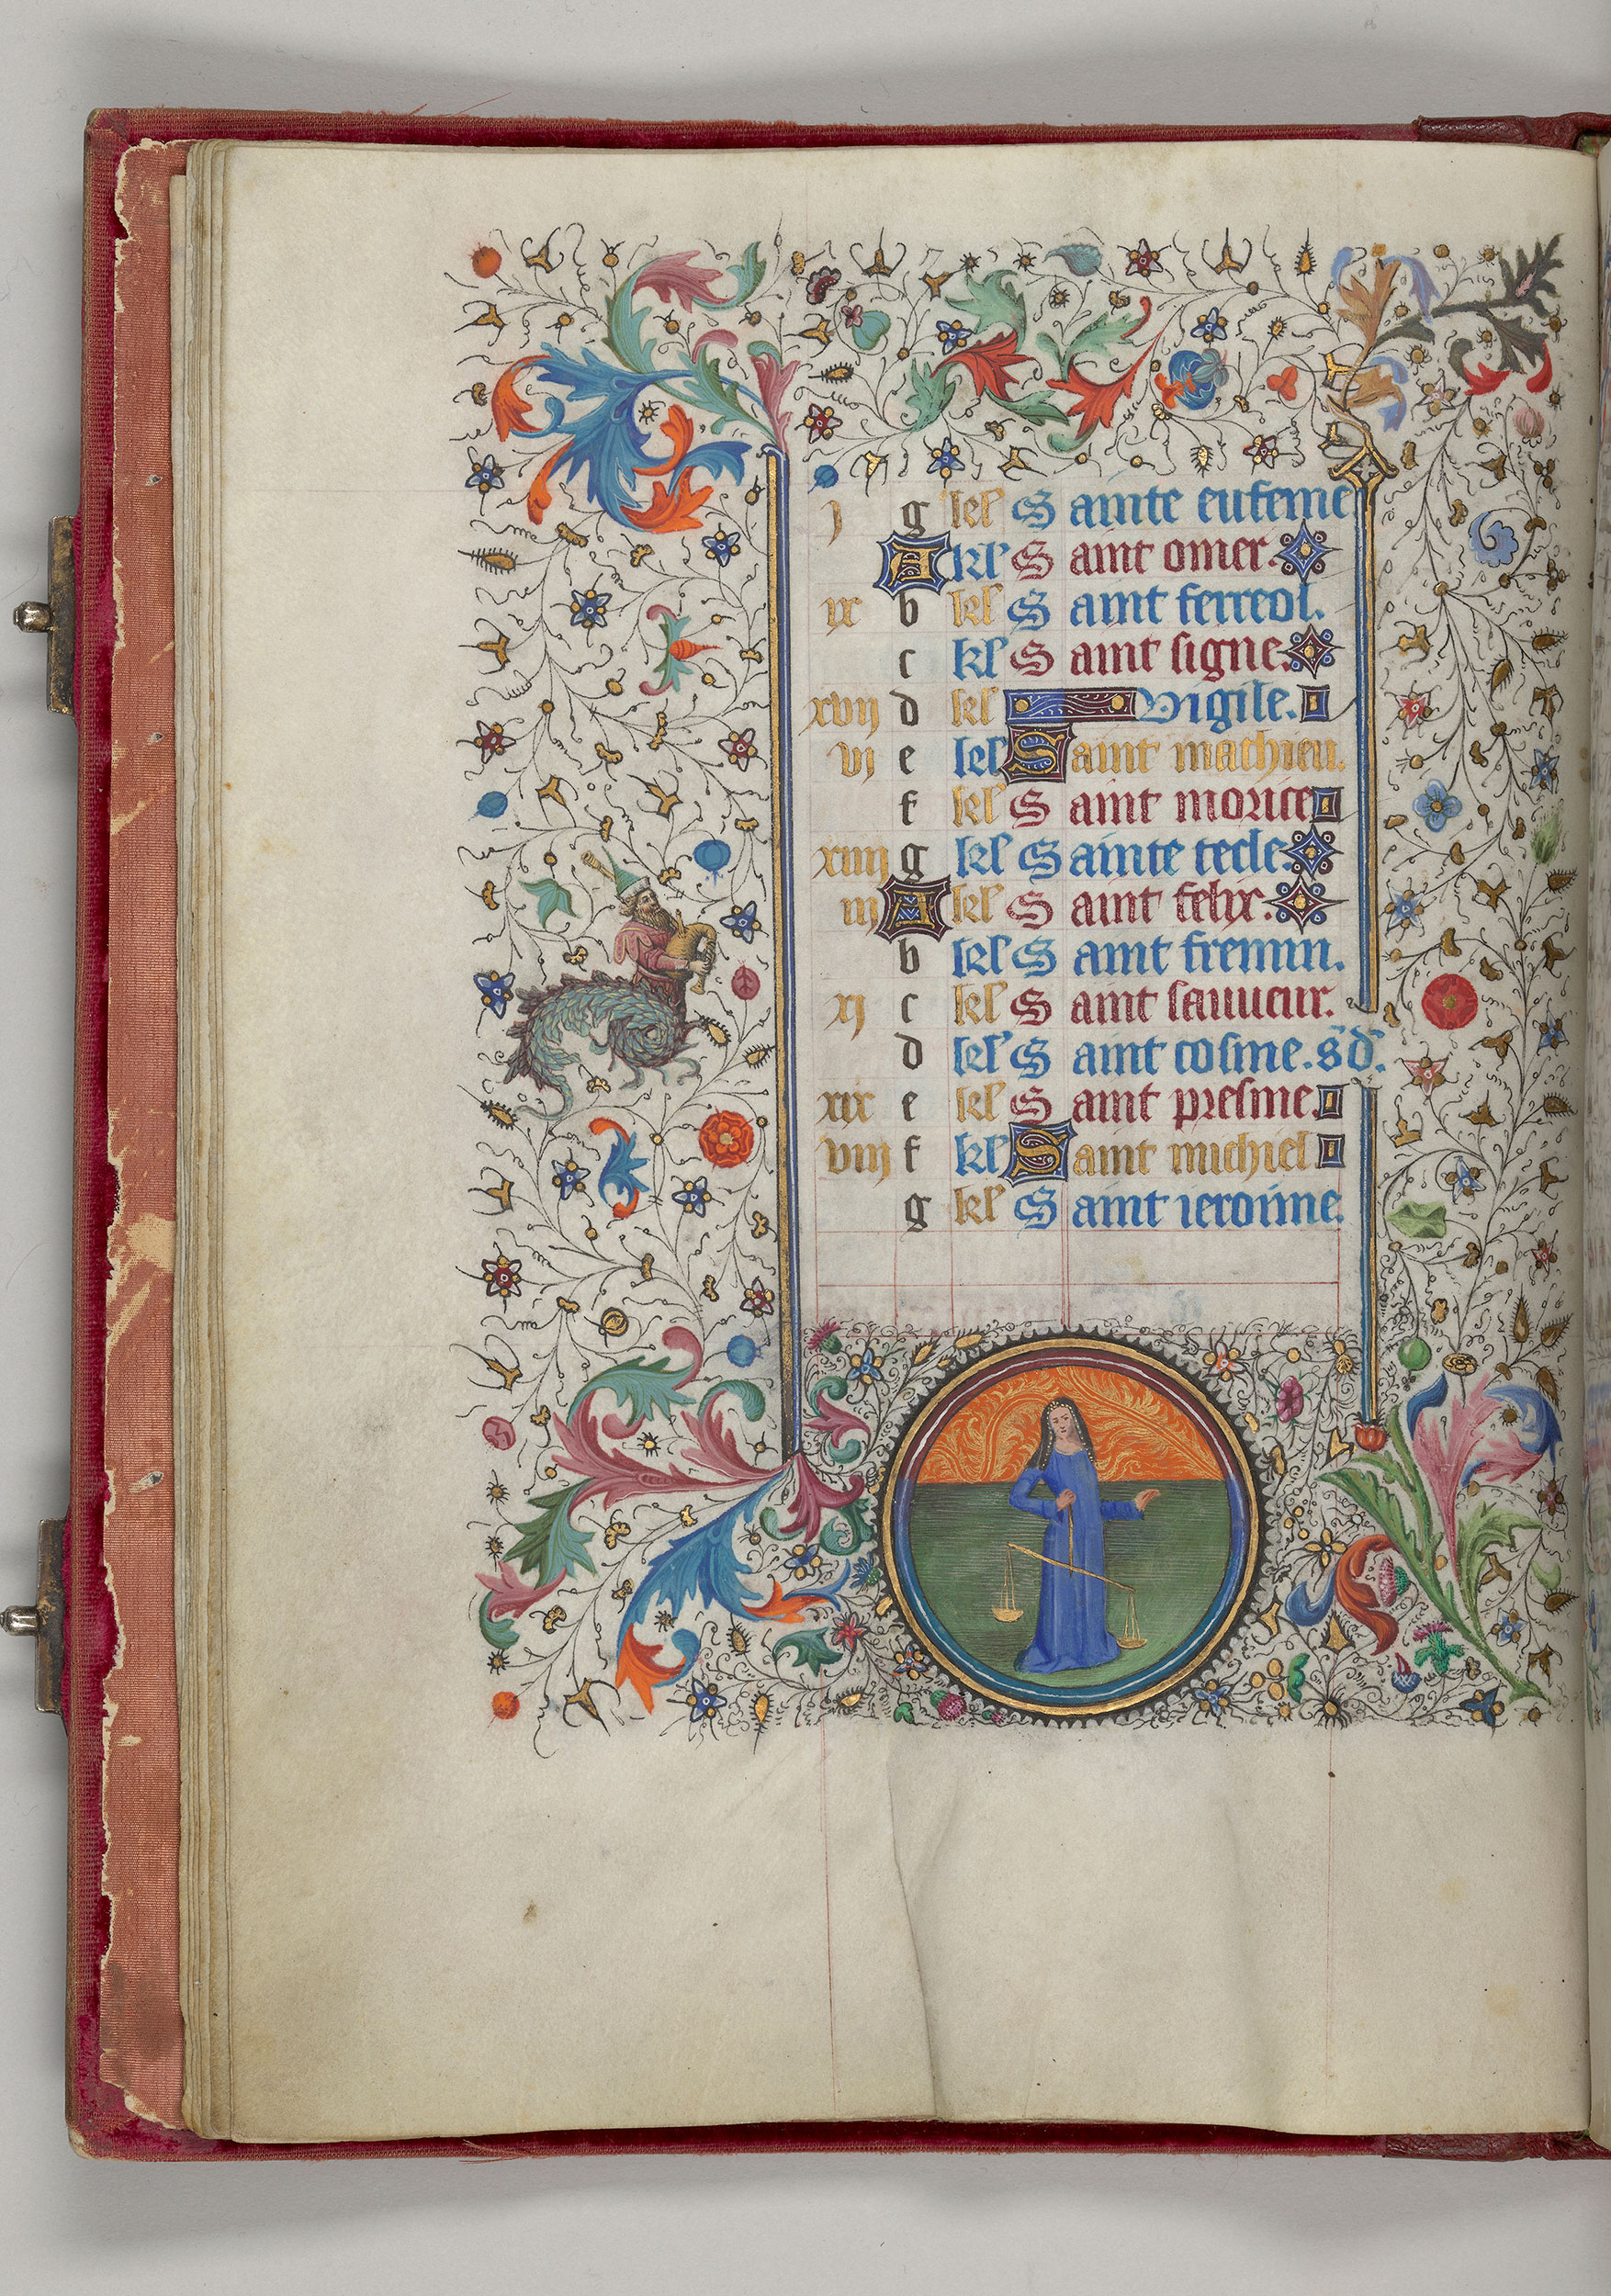 j g kl' Sainte eufeme
A kl' Saint omer.
ix b kl' Saint ferreol.
c kl' Saint signe.
xvij d kl' Vigile.
vj e kl' Saint mathieu.
f kl' Saint morice
xiiij g kl' Sainte tecle.
iij A kl' Saint felix.
b kl' Saint fremin.
xj c kl' Saint sauueur.
d kl' Saint cosme. s. d'.
xix e kl' Saint presme.
viij f kl' Saint michiel
g kl' Saint ieroime.